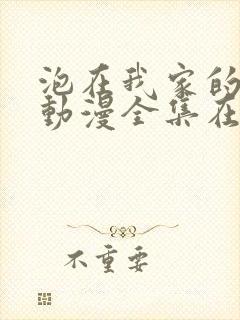 泡在我家的
動漫全集在
不重要